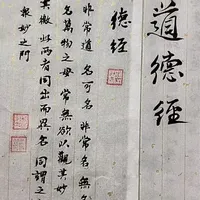 道德經
德經
非常道 名可名 非常名 無名
名萬物之母 常無欲以觀其妙
其徼此兩者同出而異名 同謂之
衆妙之門